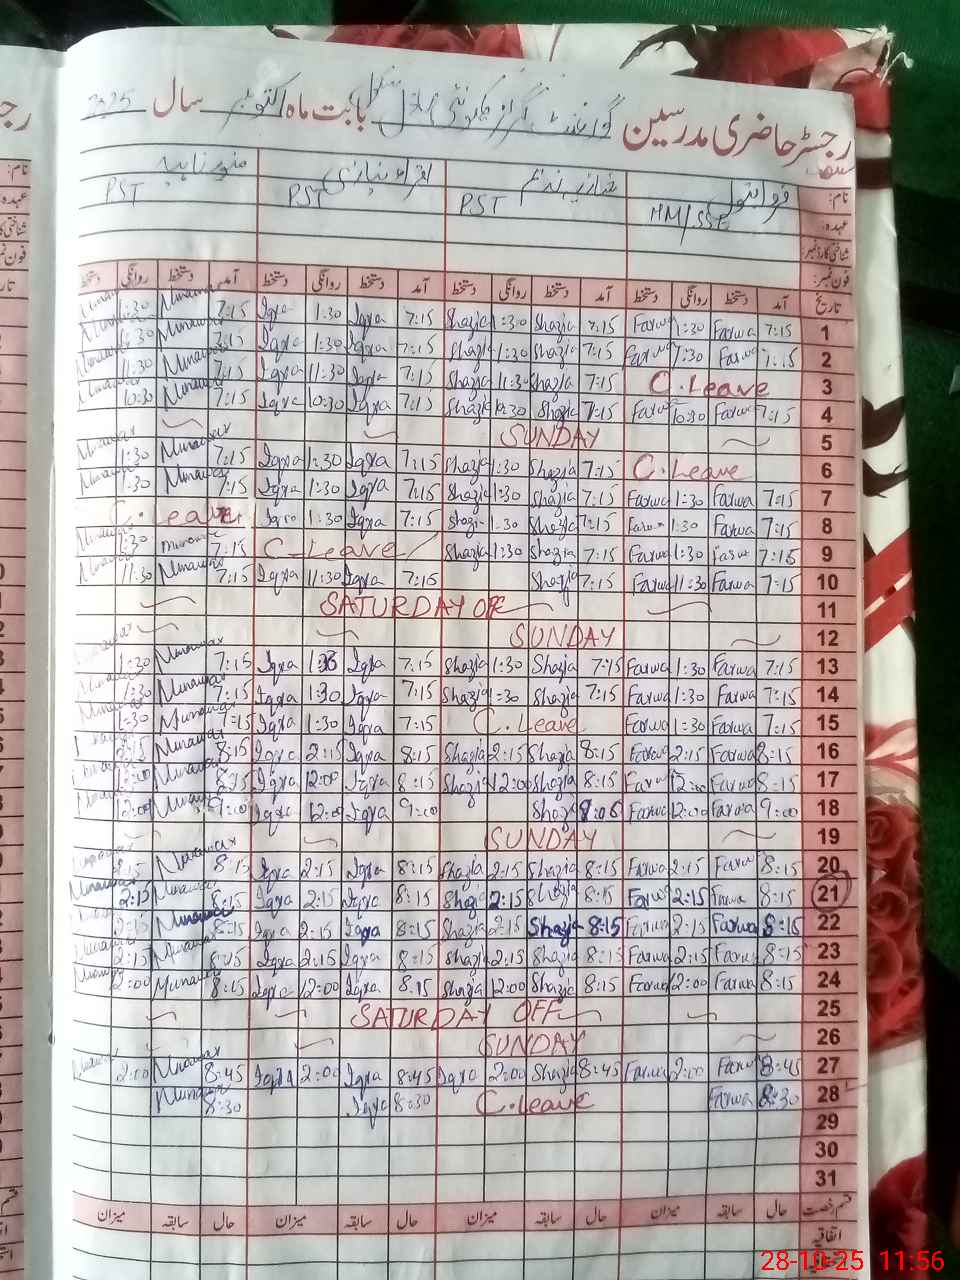 رجسٹر حاضری مدرسین گورنمنٹ گرلز کمیونٹی ماڈل سکول بابت ماہ اکتوبر سال 2025
نام:
عہدہ: HM/SSE PST PST PST
شناختی کارڈ نمبر:
فون نمبر:
تاریخ آمد دستخط روانگی دستخط آمد دستخط روانگی دستخط آمد دستخط روانگی دستخط آمد دستخط روانگی دستخط
1 7:15 Farwa 1:30 Farwa 7:15 Shazia 1:30 Shazia 7:15 Iqra 1:30 Iqra 7:15 Munawar 1:30
2 7:15 Farwa 1:30 Farwa 7:15 Shazia 1:30 Shazia 7:15 Iqra 1:30 Iqra 7:15 Munawar 1:30 Munawar
3 C.Leave 7:15 Shazia 11:30 Shazia 7:15 Iqra 11:30 Iqra 7:15 Munawar 11:30 Munawar
4 7:15 Farwa 10:30 Farwa 7:15 Shazia 10:30 Shazia 7:15 Iqra 10:30 Iqra 7:15 Munawar 10:30 Munawar
5 SUNDAY
6 C.Leave 7:15 Shazia 1:30 Shazia 7:15 Iqra 1:30 Iqra 7:15 Munawar 1:30 Munawar
7 7:15 Farwa 1:30 Farwa 7:15 Shazia 1:30 Shazia 7:15 Iqra 1:30 Iqra 7:15 Munawar 1:30 Munawar
8 7:15 Farwa 1:30 Farwa 7:15 Shazia 1:30 Shazia 7:15 Iqra 1:30 Iqra C.Leave
9 7:15 Farwa 1:30 Farwa 7:15 Shazia 1:30 Shazia C-Leave 7:15 Munawar 1:30 Munawar
10 7:15 Farwa 11:30 Farwa 7:15 Shazia 7:15 Iqra 11:30 Iqra 7:15 Munawar 11:30 Munawar
11 SATURDAY OFF
12 SUNDAY
13 7:15 Farwa 1:30 Farwa 7:15 Shazia 1:30 Shazia 7:15 Iqra 1:30 Iqra 7:15 Munawar 1:30 Munawar
14 7:15 Farwa 1:30 Farwa 7:15 Shazia 1:30 Shazia 7:15 Iqra 1:30 Iqra 7:15 Munawar 1:30 Munawar
15 7:15 Farwa 1:30 Farwa C.Leave 7:15 Iqra 1:30 Iqra 7:15 Munawar 1:30 Munawar
16 8:15 Farwa 2:15 Farwa 8:15 Shazia 2:15 Shazia 8:15 Iqra 2:15 Iqra 8:15 Munawar 2:15
17 8:15 Farwa 12:00 Farwa 8:15 Shazia 12:00 Shazia 8:15 Iqra 12:00 Iqra 8:15 Munawar 12:00
18 9:00 Farwa 12:00 Farwa Shazia 9:00 Iqra 12:00 Iqra 9:00 Munawar 12:00
19 SUNDAY
20 8:15 Farwa 2:15 Farwa 8:15 Shazia 2:15 Shazia 8:15 Iqra 2:15 Iqra 8:15 Munawar 2:15 Munawar
21 8:15 Farwa 2:15 Farwa 8:15 Shazia 2:15 Shazia 8:15 Iqra 2:15 Iqra 8:15 Munawar 2:15 Munawar
22 8:15 Farwa 2:15 Farwa 8:15 Shazia 2:15 Shazia 8:15 Iqra 2:15 Iqra 8:15 Munawar 2:15 Munawar
23 8:15 Farwa 2:15 Farwa 8:15 Shazia 2:15 Shazia 8:15 Iqra 2:15 Iqra 8:15 Munawar 2:15 Munawar
24 8:15 Farwa 12:00 Farwa 8:15 Shazia 12:00 Shazia 8:15 Iqra 12:00 Iqra 8:15 Munawar 12:00 Munawar
25 SATURDAY OFF
26 SUNDAY
27 8:45 Farwa 2:00 Farwa 8:45 Shazia 2:00 Iqra 8:45 Iqra 2:00 Iqra 8:45 Munawar 2:00 Munawar
28 8:30 Farwa C.Leave 8:30 Iqra 8:30 Munawar
29
30
31
قسم رخصت حال سابقہ میزان حال سابقہ میزان حال سابقہ میزان حال سابقہ میزان
اتفاقیہ
28-10-25 11:56